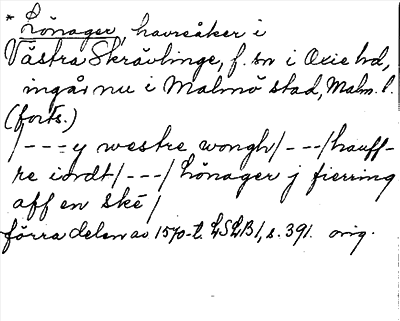 * Lönager, havreåker i
Västra Skrävlinge, f. sn i Oxie hd,
ingår nu i Malmö stad, Malm. l.
(forts.)
/---y westre wongh/---/hauff-
re iordt/---/Lönager j fierring
aff en Ske/
förra delen av 1570-t. LSLB1, s. 391. orig.